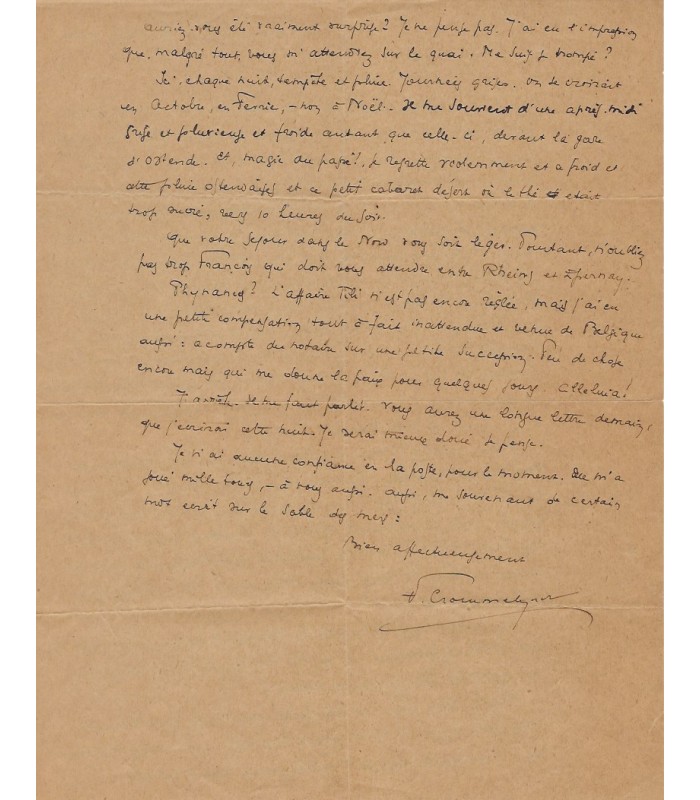 auriez-vous été vraiment surprise? Je ne pense pas. J'ai eu l'impression
que, malgré tout, vous m'attendiez sur le quai. Me suis-je trompé?
Ici, chaque nuit, tempête et pluie. Journées grises. On se croirait
en Octobre, en Février, - non à Noël. Je me souviens d'une après-midi
grise et pluvieuse et froide autant que celle-ci, devant la gare
d'Ostende. Et, magie du passé!, je regrette violemment et à froid et
cette pluie ostendaise et ce petit cabaret désert où le thé était
trop sucré, vers 10 heures du soir.
Que votre séjour dans le Nord vous soit léger. Pourtant, n'oubliez
pas trop François qui doit vous attendre entre Rheims et Epernay.
Phynances? L'affaire Titi n'est pas encore réglée, mais j'ai eu
une petite compensation tout à fait inattendue et venue de Belgique
aussi: acompte du notaire sur une petite succession. Peu de chose
encore mais qui me donne la paix pour quelques jours. Alleluia!
J'arrête. Je me faut partir. Vous aurez une longue lettre demain,
que j'écrirai cette nuit. Je serai mieux doué je pense.
Je n'ai aucune confiance en la poste, pour le moment. Elle m'a
joué mille tours, - à vous aussi. Aussi, me souvenant de certain
mot écrit sur le sable des mers:
Bien affectueusement
F. Crommelynck